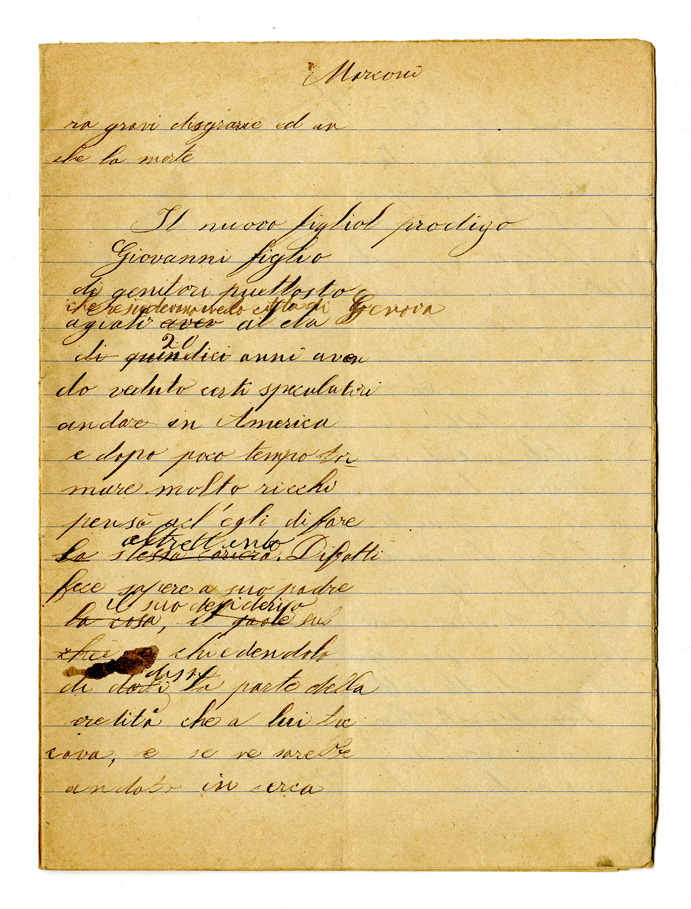 Marconi
ra gravi disgrazie ed an
che la morte
Il nuovo figliol prodigo
Giovanni figlio
di genitori piuttosto
che risiedevano nella città di Genova
agiati aver al età
20
di quindici anni aven
do veduto certi speculatori
andare in America
e dopo poco tempo tor
nare molto ricchi
pensò ad egli di fare
altrettanto
la stessa carriera. Difatti
fece sapere a suo padre
il suo desiderio
la cosa, il quale sul
chiedendolo
di dargli la parte della
eredità che a lui toc
cava, e se ne sarebbe
andato in cerca